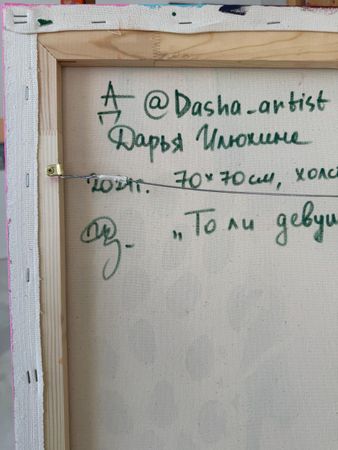 @Dasha_artist
Дарья Илюхина
2021г. 70×70см, холс
„То ли девуш